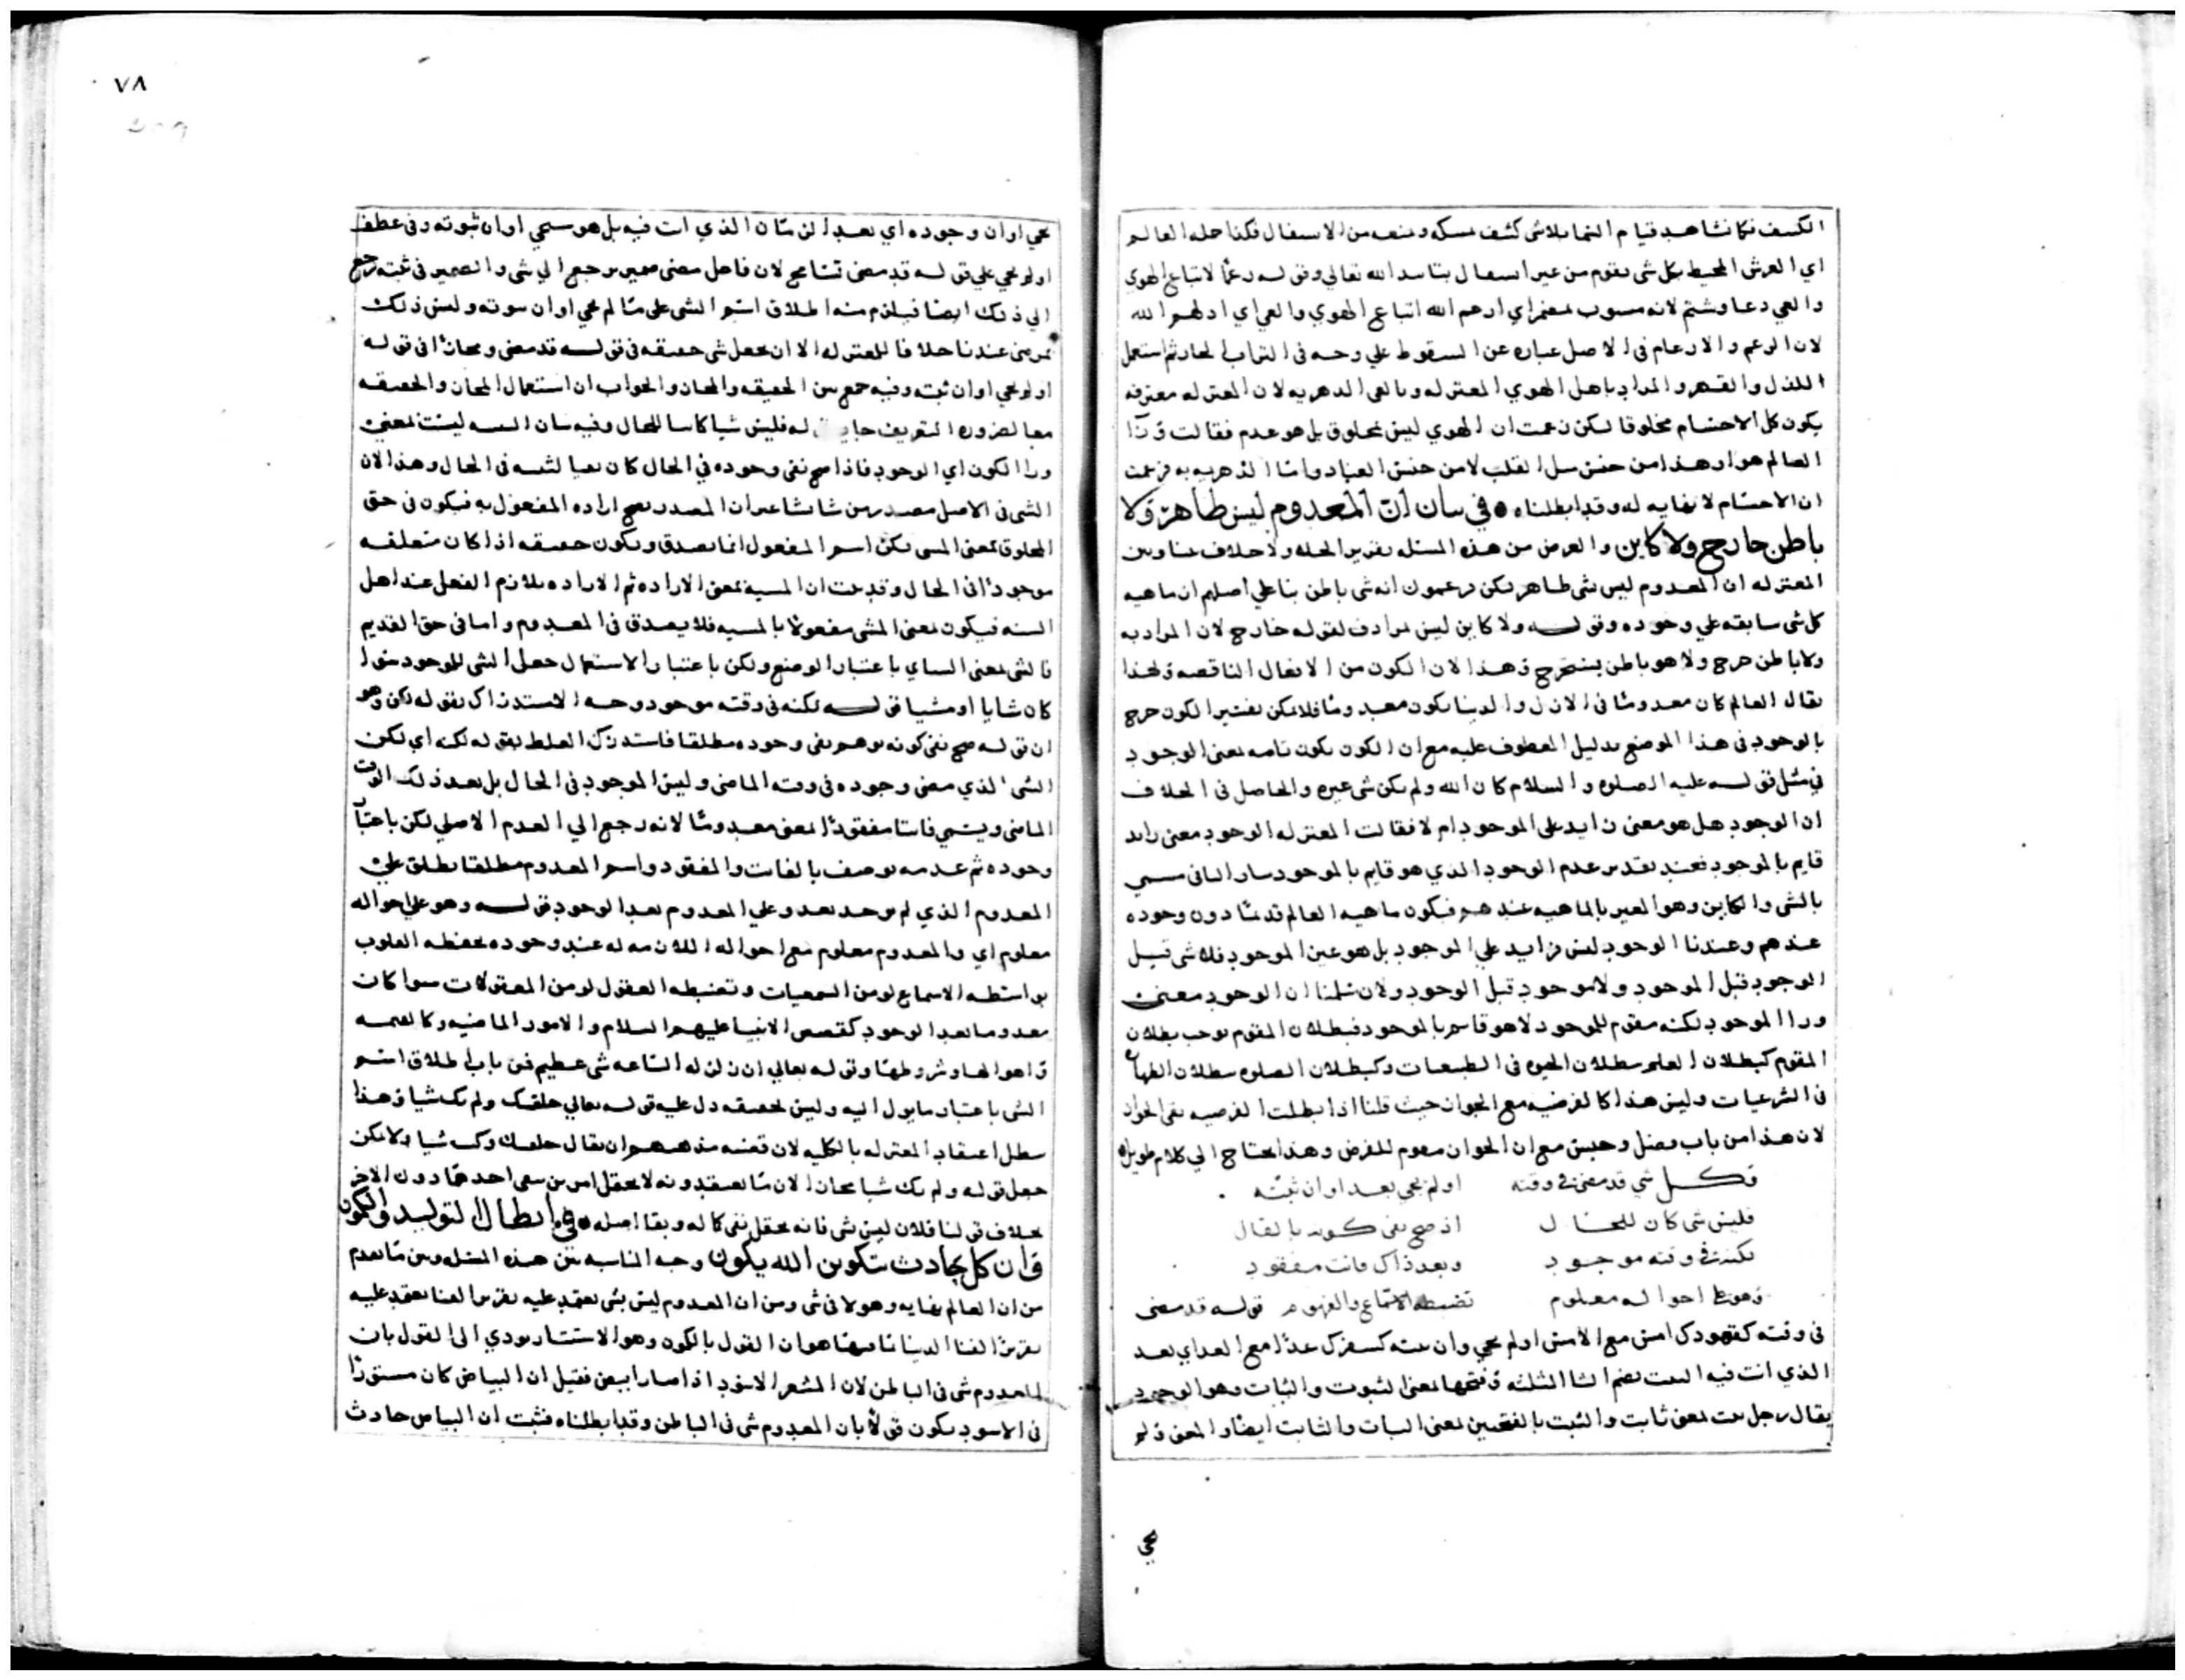 الكسف فكما نشاهد قيام السما بلا شى كشف مسكه ومنعه من الاسفال فكذا حمله العالم
اي العرش المحيط بكل شى يقوم من غير اسفال بتاييد الله تعالي وقوله رغما لاتباع الهوي
والعي دعا وشتم لانه منصوب بمضمر اي ارغم الله اتباع الهوي والعي اي اذلهم الله
لان الرغم والارغام فى الاصل عباره عن السقوط علي وجهه فى التراب ثم استعمل
للذل والقهر والمراد باهل الهوي المعتزله وبالعي الدهريه لان المعتزله معترفه
بكون كل الاجسام مخلوقا لكن زعمت ان الهوي ليس بمخلوق بل هو عدم فقالت
العالم هوا وهذا من جنس ميل القلب لا من جنس العباد واما الدهريه فزعمت
ان الاجسام لا نهايه له وقد ابطلناه في بيان ان المعدوم ليس ظاهر ولا
باطن خارج ولا كاين والغرض من هذه المسئله تقرير الجمله ولا خلاف بيننا وبين
المعتزله ان المعدوم ليس شى ظاهر لكن يزعمون انه شى باطن بنا علي اصلهم ان ماهيه
كل شى سابقه علي وجوده وقوله ولا كاين ليس بمرادف لقوله خارج لان المراد به
ولا باطن خرج ولا هو باطن يستخرج وهذا لان الكون من الافعال الناقصه ولهذا
يقال العالم كان معدوما فى الازل والدنيا يكون معدوما فلا يمكن تفسير الكون خرج
بالوجود فى هذا الموضع بدليل المعطوف عليه مع ان الكون يكون تامه بمعنى الوجود
في مثل قوله عليه الصلوه والسلام كان الله ولم يكن شى غيره والحاصل فى الخلاف
ان الوجود هل هو معنى زايد على الموجود ام لا فقالت المعتزله الوجود معنى زايد
قايم بالموجود فعند تقدير عدم الوجود الذي هو قايم بالموجود صار الباقى يسمى
بالشى والكاين وهو المعبر بالماهيه عندهم فيكون ماهيه العالم قديما دون وجوده
عندهم وعندنا الوجود ليس بزايد علي الموجود بل هو عين الموجود فلا شى قبل
الوجود قبل الموجود ولا موجود قبل الوجود ولان سلمنا ان الوجود معنى
ورا الموجود لكنه مقوم للموجود لا هو قايم بالموجود فبطلان المقوم يوجب بطلان
المقوم كبطلان العلم ببطلان الحيوه فى الطبيعيات وكبطلان الصلوه ببطلان الطهاره
فى الشرعيات وليس هذا كالفرضيه مع الجواز حيث قلنا اذا بطلت الفرضيه بقى الجواز
لان هذا من باب فصل وجنس مع ان الجواز مقوم للفرض وهذا يحتاج الي كلام طويل
وكل شي قد مضى في وقته اولم يجي بعد اوان ثبته
فليس شى كان للحال اذ صح نفى كونه بالقال
لكنه في وقته موجود وبعد ذاك فايت مفقود
وهو علي احواله معلوم تضبطه الاسماع والفهوم قوله قد مضى
فى وقته كقعودك امس مع الامس اولم يجي وان ثبته كسفرك غدا مع الغد اي بعد
الذي انت فيه الثبت بضم الثا المثلثه وفتحها بمعنى الثبوت والثبات وهو الوجود
يقال رجل ثبت بمعنى ثابت والثبت بالفتحتين بمعنى الثبات والثابت ايضا والمعنى ولم
يجي
٧٨
يجي اوان وجوده اي بعد الزمان الذي انت فيه بل هو سيجي اوان ثبوته وفى عطف
اولم يجي علي قوله قد مضى تسامح لان فاعل مضى ضمير يرجع الي شى والضمير فى ثبته رجع
الي ذلك ايضا فيلزم منه اطلاق اسم الشى على ما لم يجي اوان ثبوته وليس ذلك
بمرضى عندنا خلافا للمعتزله الا ان يجعل شى حقيقه فى قوله قد مضى ومجازا فى قوله
اولم يجي اوان ثبت وفيه جمع بين الحقيقه والمجاز والجواب ان استعمال المجاز والحقيقه
معا لضروره التعريف جايز له فليس شيا كاينا للحال وفيه بيان الشييه ليست بمعنى
ورا الكون اي الوجود فاذا صح نفى وجوده فى الحال كان نفيا لشييه فى الحال وهذا لان
الشى فى الاصل مصدر من شا يشا غير ان المصدر يصح اراده المفعول به فيكون فى حق
المخلوق بمعنى المشى لكن اسم المفعول انما يصدق ويكون حقيقه اذا كان متعلقه
موجودا فى الحال وقد ثبت ان المشييه بمعنى الاراده ثم الاراده يلازم الفعل عند اهل
السنه فيكون بمعنى المشى مفعولا بالمشييه فلا يصدق فى المعدوم واما فى حق القديم
فالشى بمعنى الشاي باعتبار الوضع ولكن باعتبار الاستعمال جعل الشى للموجود سوا
كان شايا او مشيا قوله لكنه فى وقته موجود وجه الاستدراك بقوله لكن وهو
ان قوله صح نفى كونه يوهم نفى وجوده مطلقا فاستدرك الغلط بقوله لكنه اي لكن
الشى الذي مضى وجوده فى وقته الماضى وليس الموجود فى الحال بل بعد ذلك الوقت
الماضى ويسمى فايتا مفقودا بمعنى معدوما لانه رجع الي العدم الاصلي لكن باعتبار
وجوده ثم عدمه يوصف بالفايت والمفقود واسم المعدوم مطلقا يطلق علي
المعدوم الذي لم يوجد بعد وعلي المعدوم بعد الوجود قوله وهو علي احواله
معلوم اي والمعدوم معلوم مع احواله اللازمه له عند وجوده بحفظه القلوب
بواسطه الاسماع لو من السمعيات وتضبطه العقول لو من المعقولات سوا كان
معدوما بعد الوجود كقصص الانبيا عليهم السلام والامور الماضيه وكالقيمه
واهوالها وشروطها وقوله تعالي ان زلزله الساعه شى عظيم فمن باب اطلاق اسم
الشى باعتبار ما يول اليه وليس بحقيقه دل عليه قوله تعالي خلقتك ولم تك شيا وهذا
يبطل اعتقاد المعتزله بالكليه لان قضيه مذهبهم ان يقال خلقتك وكنت شيا ولا يمكن
جعل قوله ولم تك شيا مجازا لان ما يعتقدونه لا يحتمل امرين نفى احدهما دون الاخر
بخلاف قولنا فلان ليس شى فانه يحتمل نفى كماله وبقا اصله في ابطال التوليد والكمون
وان كل حادث بتكوين الله يكون وجه المناسبه بين هذه المسئله وبين ما تقدم
من ان العالم نهايه وهو لا فى شى ومن ان المعدوم ليس بشى يعتمد عليه
تقريرا لفنا الدنيا ان القول بالكمون وهو الاستتار يودي الى القول بان
المعدوم شى فى الباطن لان الشعر الاسود اذا صار ابيض فقيل ان البياض كان مستورا
فى الاسود يكون قولا بان المعدوم شى فى الباطن وقد ابطلناه فثبت ان البياض حادث